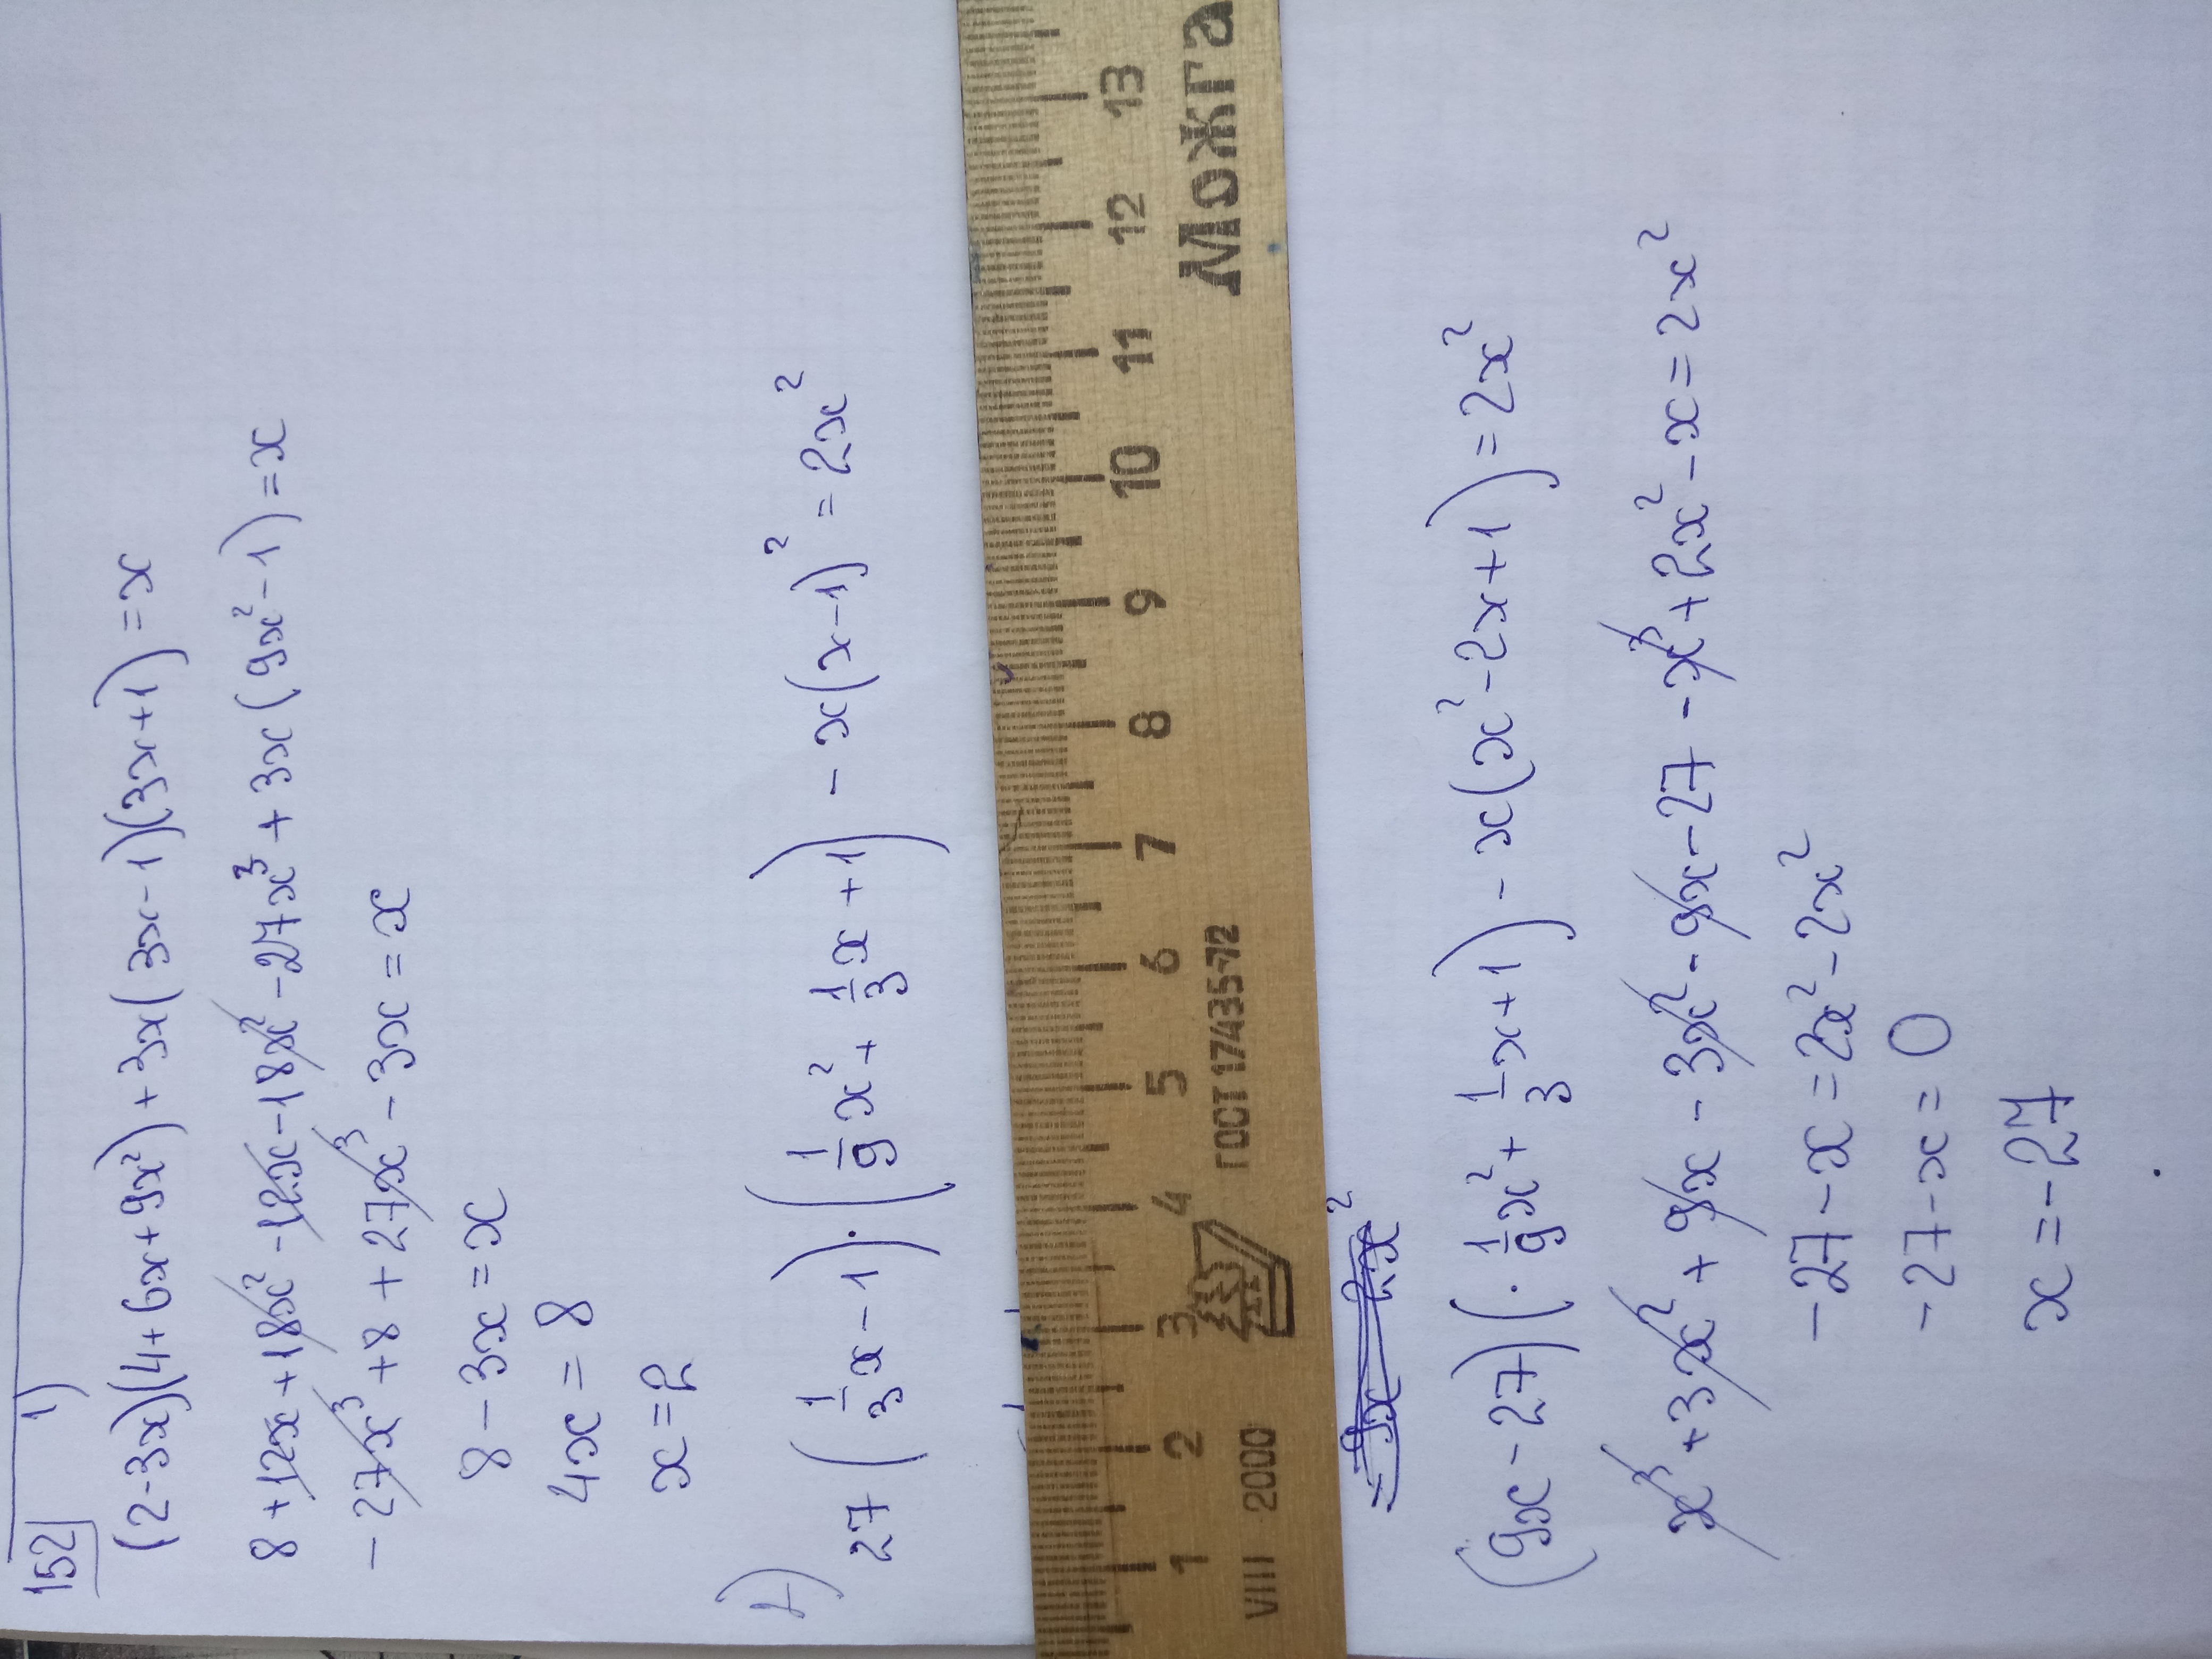 152 1)
(2-3x)(4+6x+9x²)+3x(3x-1)(3x+1)=x
8+12x+18x²-12x-18x²-27x³+3x(9x²-1)=x
-27x³+8+27x³-3x=x
8-3x=x
4x=8
x=2
2)
27(1/3x-1)·(1/9x²+1/3x+1)-x(x-1)²=2x²
1 2 3 4 5 6 7 8 9 10 11 12 13
VIII 2000 ГОСТ 17435-72 Можга
(9x-27)(·1/9x²+1/3x+1)-x(x²-2x+1)=2x²
x³+3x²+9x-3x²-9x-27-x³+2x²-x=2x²
-27-x=2x²-2x²
-27-x=0
x=-27